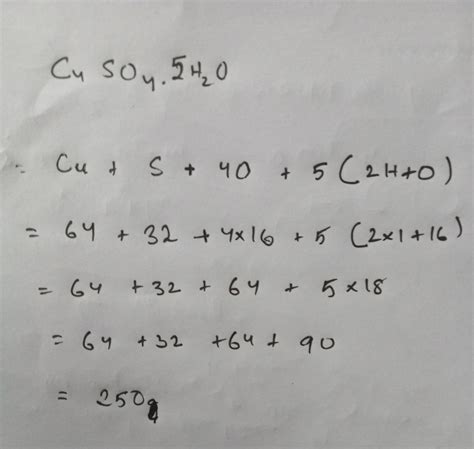 CuSO4.5H2O
∴ Cu + S + 4O + 5(2H+O)
= 64 + 32 + 4×16 + 5 (2×1+16)
= 64 + 32 + 64 + 5×18
= 64 + 32 + 64 + 90
= 250g